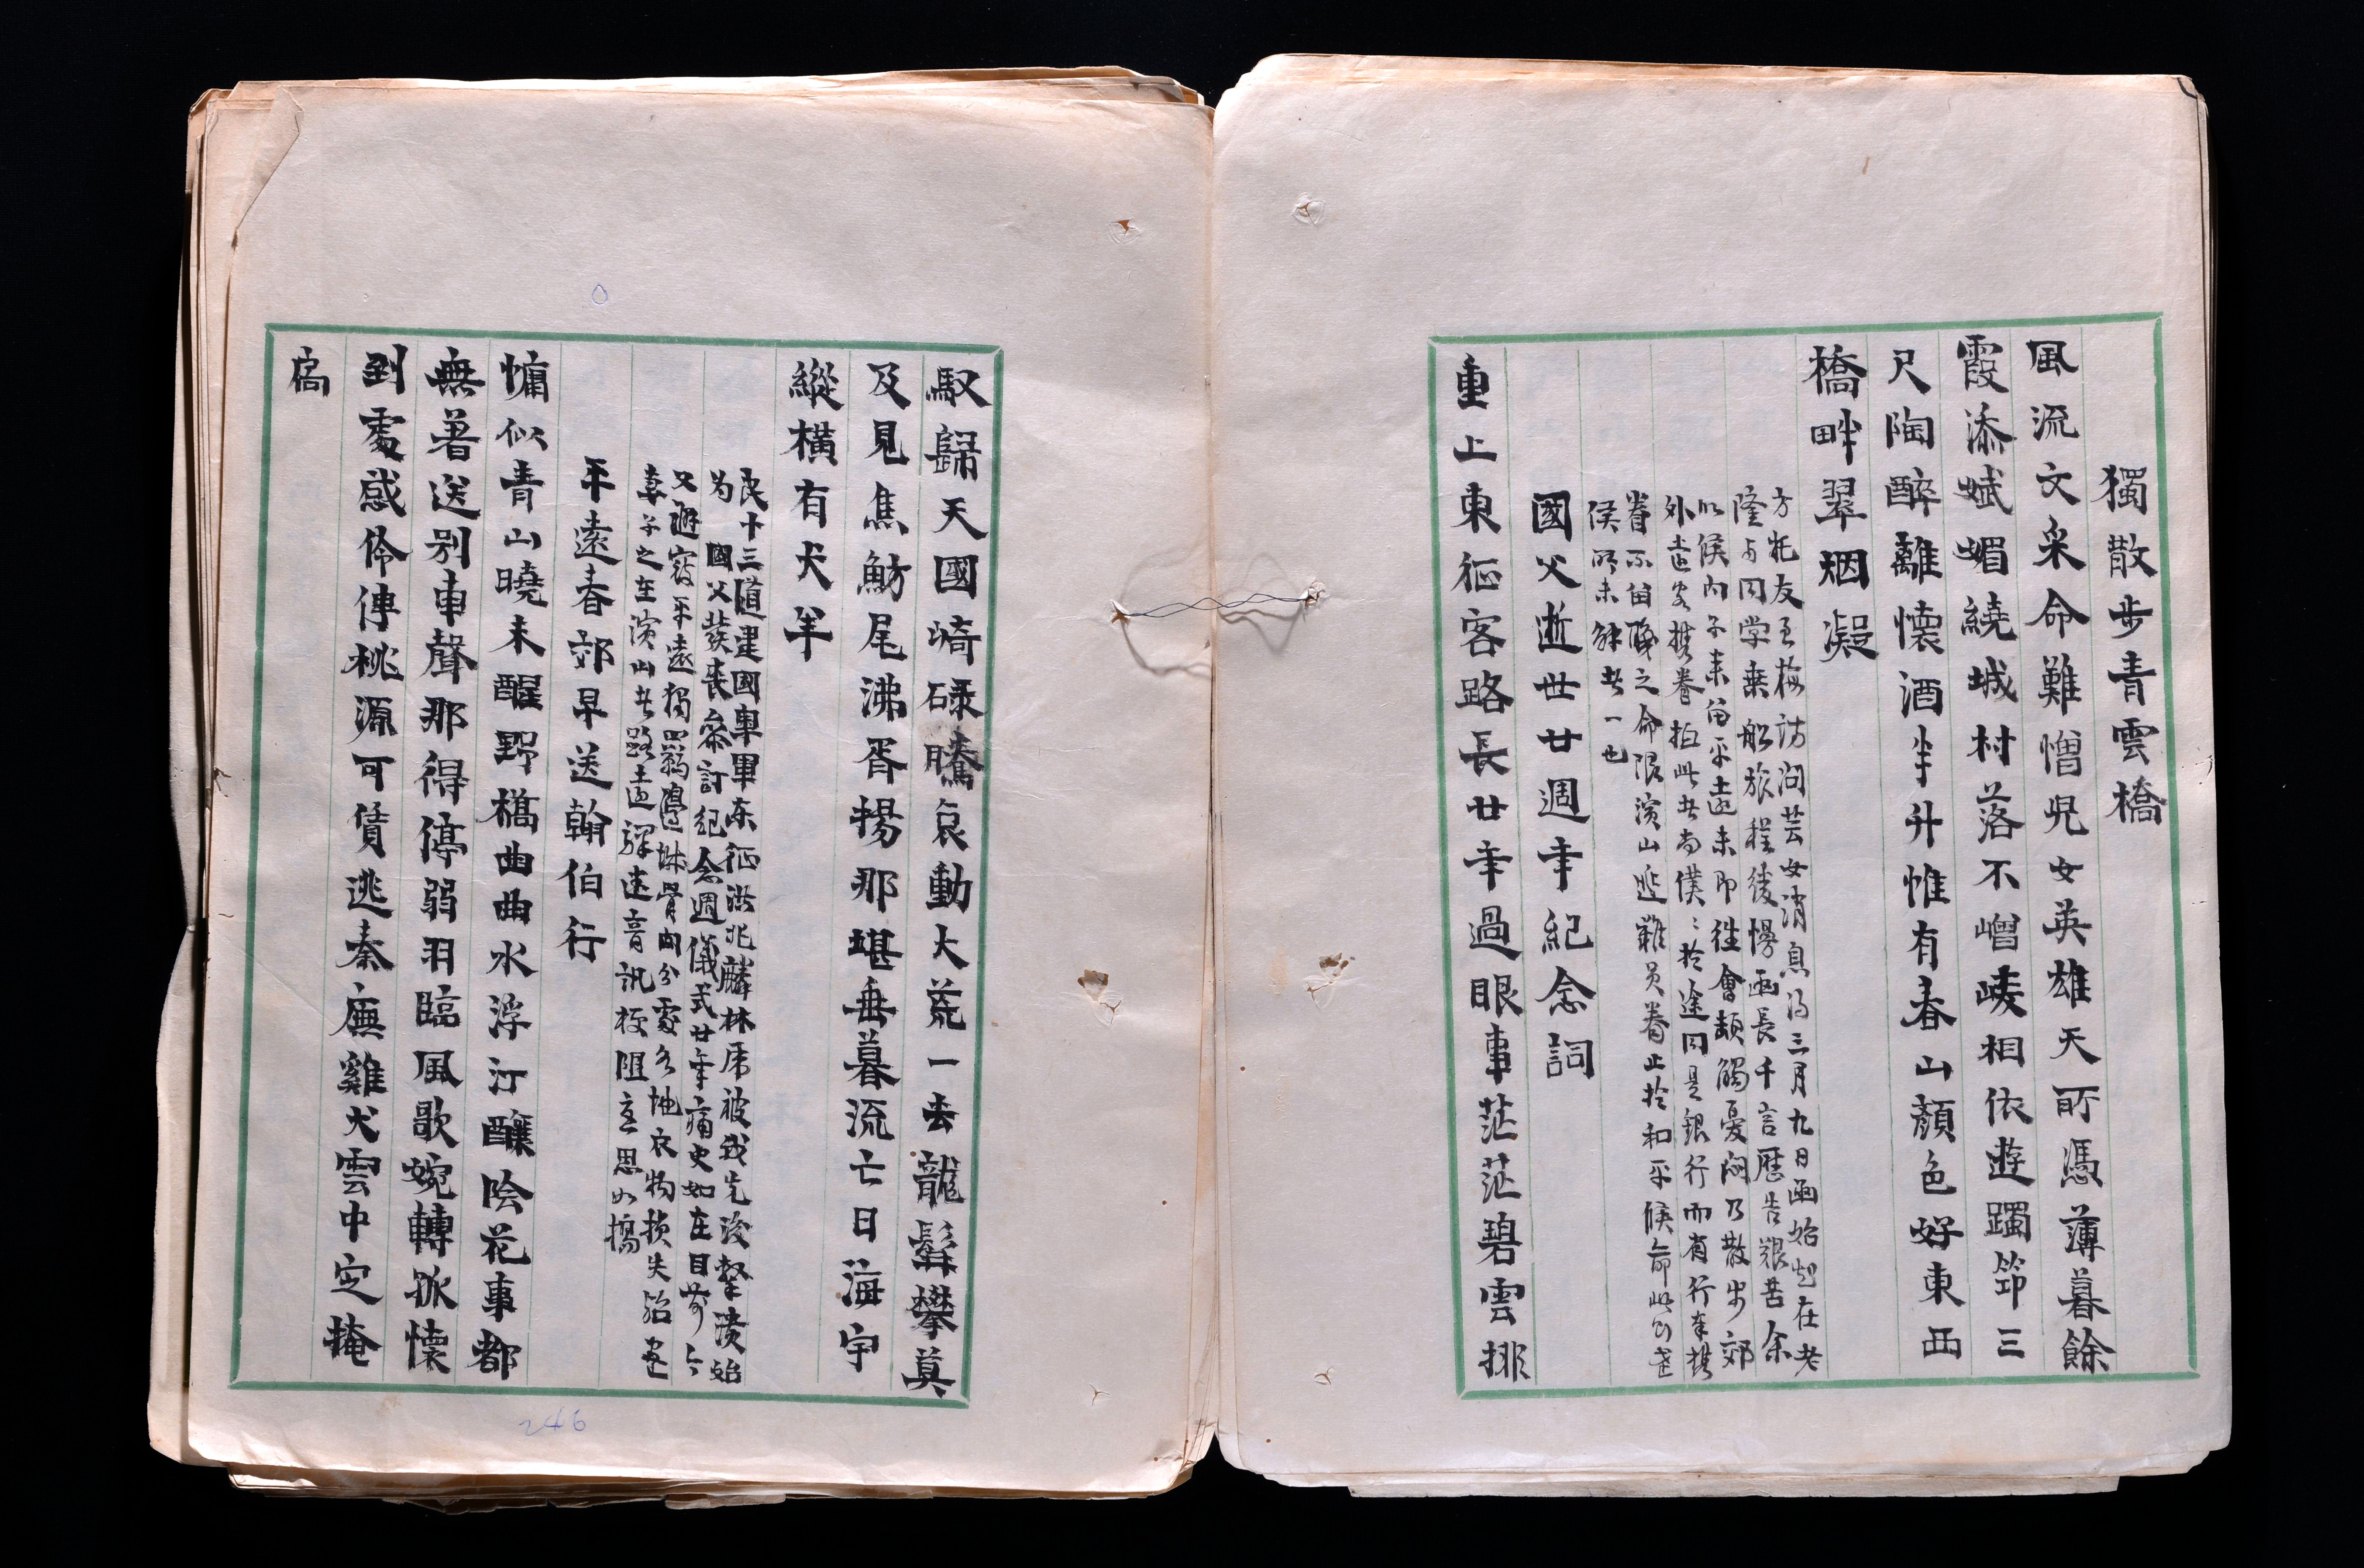 獨散步青雲橋
風流文采命難憎兒女英雄天所憑薄暮餘
霞添娬媚繞城村落不嶒崚相依遊躅笻三
尺陶醉離懷酒半升惟有春山顏色好東西
橋畔翠烟凝
方托友至梅訪問芸女消息得三月九日函始起在老
隆与同学乘船旅程後慢函長千言歷告艱苦余
以候內子来留平遠未即往會頗觸憂悶乃散步郊
外遠安携眷拍此者尚僕々於途同是銀行而有行率携
眷不留職之命限滨山逃難員眷止於和平候命此則老
侯所未解者一也
國父逝世廿週年紀念詞
重上東征客路長廿年過眼事茫茫碧雲排
馭歸天國崎碌騰哀動大荒一去龍髯攀莫
及見焦魴尾沸胥揚那堪垂暮流亡日海宇
縱橫有犬羊
民十三道建國粤軍东征洪兆麟林虎被我先後擊潰始
为　國父發喪參訂紀念週儀式廿年痛史如在目前今
又避寇平遠獨羈隱骨肉分處各地衣物损失殆盡
妻子之在滨山者路遠驛速音訊梗阻言思如搗
平遠春郊早送翰伯行
慵似青山曉未醒野橋曲曲水浮汀釀陰花事都
無著送別車聲那得停弱羽臨風歌婉轉孤懷
到處感伶俜桃源可賃逃秦廡雞犬雲中定掩
扃
246